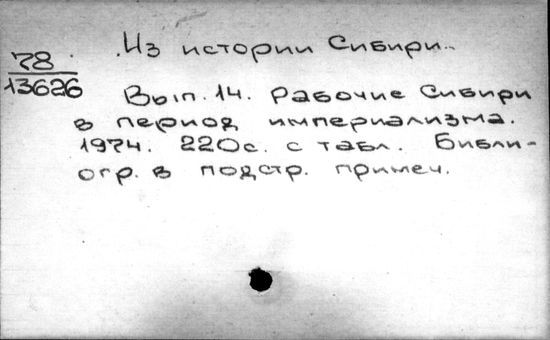 Из истории Сибири...
78
13626
Вып. 14. Рабочие Сибири
в период империализма.
1974. 220с. с табл. Библи-
огр. в подстр. примеч.